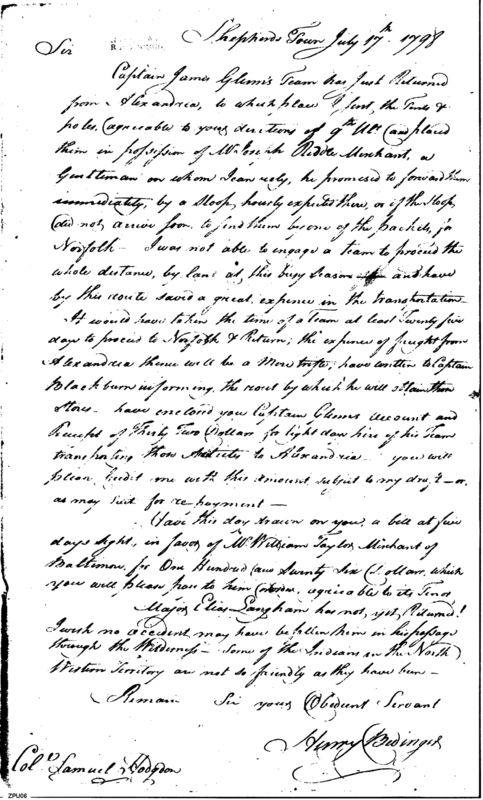 Shepherds Town July 17th 1798
Sir
Captain James Glenn's Team has Just Returned
from Alexandria, to which place I sent, the Tents &
poles, (agreeable to your directions of 9th Ulto) and placed
them in possession of Mr Joseph Riddle Merchant, a
Gentleman on whom I can rely, he promised to forward them
immediately, by a Sloop, hourly expected there, or if the Sloop,
did not arrive soon to send them by one of the packets, for
Norfolk — I was not able to engage a team to proceed the
whole distance, by land at, this busy Season and have
by this route saved a great, expence in the transportation
It would have taken the time of a Team at least Twenty five
days to proceed to Norfolk & Return; the expence of freight from
Alexandria thence will be a Mere trifle; have written to Captain
Blackburn informing, the rout by which he will obtain those
Stores — have enclosed you Captain Glenns account and
Receipt of Thirty Two Dollars for Eight days hire of his Team
transporting those Articles to Alexandria you will
please, Credit me with this amount subject to my draft — or,
as may suit for re-payment —
Have this day drawn on you, a bill at five
days sight, in favor of Mr William Taylor Merchant of
Baltimore, for One Hundred and Twenty Six Dollars, which
you will please pass to him agreeable to its Tenor
Major Elias Langham has not, yet, Returned!
I wish no accident may have befallen him in his passage
through the Wilderness — Some of the Indians in the North
Western Territory are not so friendly as they have been —
Remain Sir your Obedient Servant
Henry Bedinger
Colo Samuel Hodgdon
ZPU06